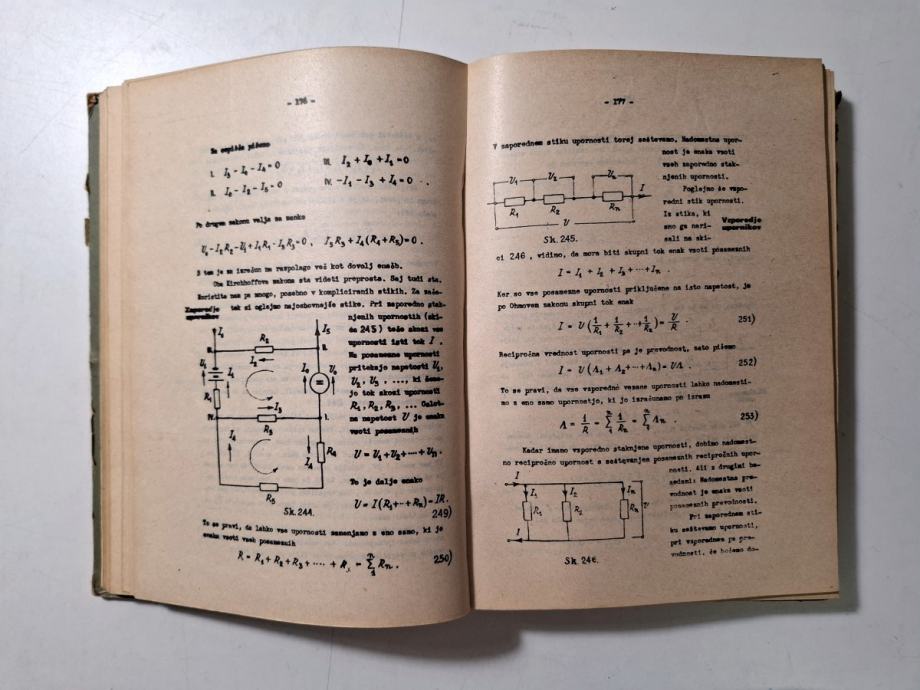 - 176 -
Za vozlišča pišemo
I. I₃ - I₀ - I₄ = 0
III. I₂ + I₀ + I₁ = 0
II. I₀ - I₂ - I₅ = 0
IV. - I₁ - I₃ + I₄ = 0 .
Po drugem zakonu velja za zanke
I₃R₃ + I₄(R₄ + R₅) = 0 .
S tem je za izračun na razpolago več kot dovolj enačb.
Oba Kirchhoffova zakona sta videti preprosta. Saj tudi sta.
Koristita nas pa mnogo, posebno v kompliciranih stikih. Za
tek si oglejmo najosnovnejše stike. Pri zaporedno stak-
Zaporedje
upornikov
njenih upornostih (ski-
ca 245) teče skozi vse
upornosti isti tok I .
Na posamezne upornosti
pritekajo napetosti U₁,
U₂, U₃ , ...., ki
jo tok skozi upornosti
R₁, R₂, R₃, ... Celot-
na napetost U je enaka
vsoti posameznih
U = U₁ + U₂ + ··· + Uₙ .
To je dalje enako
U = I (R₁ + ·· + Rₙ) = IR .
249)
I₁
I₅
R₂
III.
II.
I₂
U₁
I₁
I₀
U₀
R₁
I₃
IV.
I.
R₃
I₄
I₄
R₄
R₅
Sk. 244.
To se pravi, da lahko vse upornosti zamenjamo z eno samo, ki je
enaka vsoti vseh posameznih
R = R₁ + R₂ + R₃ + ···· + = Σ Rₙ . 250)
- 177 -
V zaporednem stiku upornosti torej seštevamo. Nadomestna upor-
nost je enaka vsoti
vseh zaporedno stak-
njenih upornosti.
Poglejmo še vzpo-
redni stik upornosti.
Iz stika, ki
smo ga nari-
sali na ski-
Vzporedje
upornikov
U₁
U₂
Uₙ
I
R₁
R₂
Rₙ
U
Sk. 245.
ci 246 , vidimo, da mora biti skupni tok enak vsoti posameznih
I = I₁ + I₂ + I₃ + ··· + Iₙ .
Ker so vse posamezne upornosti priključene na isto napetost, je
po Ohmovem zakonu skupni tok enak
I = U (1/R₁ + 1/R₂ + ·· + 1/Rₙ) = U/R . 251)
Recipročna vrednost upornosti pa je prevodnost, zato pišemo
I = U (Λ₁ + Λ₂ + ··· + Λₙ) = UΛ . 252)
To se pravi, da vse vzporedno vezane upornosti lahko nadomesti-
mo z eno samo upornostjo, ki jo izračunamo po izrazu
Λ = 1/R = Σ 1/Rₙ = Σ Λₙ . 253)
Kadar imamo vzporedno staknjene upornosti, dobimo nadomest-
no recipročno upornost s seštevanjem posameznih recipročnih upor-
nosti. Ali z drugimi be-
sedami: Nadomestna pre-
vodnost je enaka vsoti
posameznih prevodnosti.
Pri zaporednem sti-
ku seštevamo upornosti,
pri vzporednem pa pre-
vodnosti, če hočemo do-
I
I₁
I₂
Iₙ
R₁
R₂
Rₙ
U
I
Sk. 246.